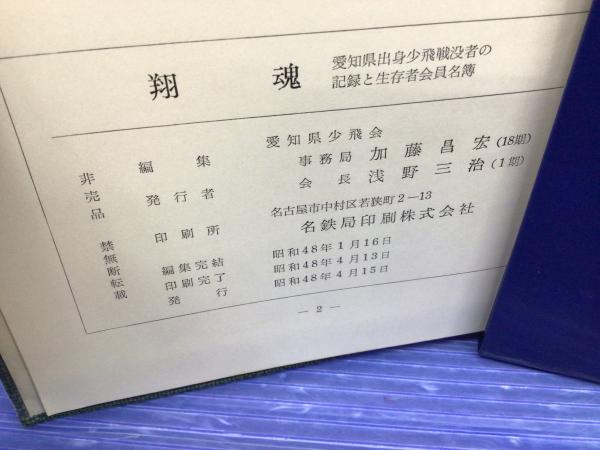 翔魂 愛知県出身少飛戦没者の
記録と生存者会員名簿
非売品
禁無断転載
編集 愛知県少飛会
事務局 加藤昌宏(18期)
発行者 会長 浅野三治(1期)
名古屋市中村区若狭町2−13
印刷所 名鉄局印刷株式会社
編集完結 昭和48年1月16日
印刷完了 昭和48年4月13日
発行 昭和48年4月15日
— 2 —